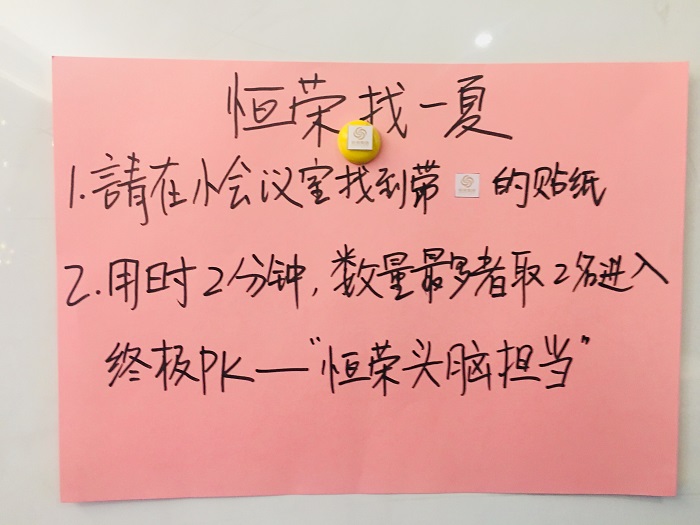 恒荣找一夏
1.請在小会议室找到带 的贴纸
2.用时2分钟,数量最多者取2名进入
终极PK—"恒荣头脑担当"